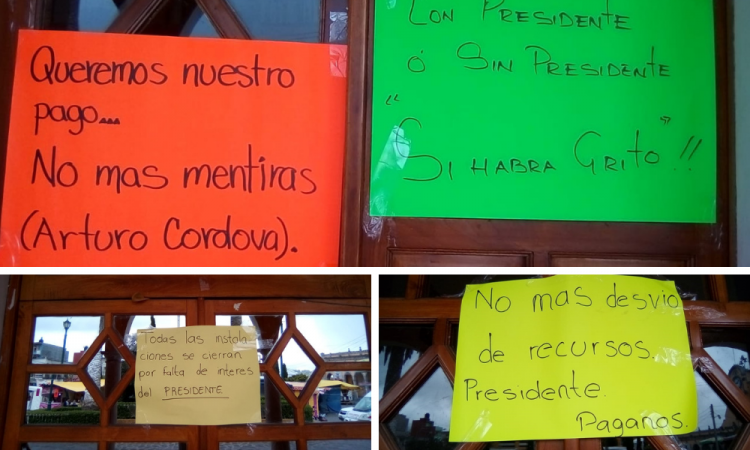 Queremos nuestro
pago...
No mas mentiras
(Arturo Cordova).
CON PRESIDENTE
Ó SIN PRESIDENTE
"SI HABRA GRITO"!!
Todas las instala
ciones se cierran
por falta de interes
del PRESIDENTE
No mas desvio
de recursos.
Presidente.
Paganos.